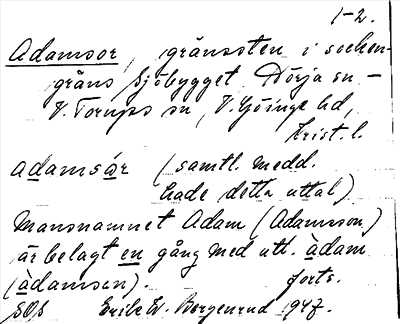 1-2.
Adamsor, gränssten i socken-
gräns Sjöbygget, Dörja sn. -
V. Torups sn, V. Göinge hd,
Krist. l.
adamsår (samtl. medd.
hade detta uttal)
Mansnamnet Adam (Adamsson)
är belagt en gång med utt. àdam
(àdamsen). forts.
SOS Erik W. Borgenrud 1947.